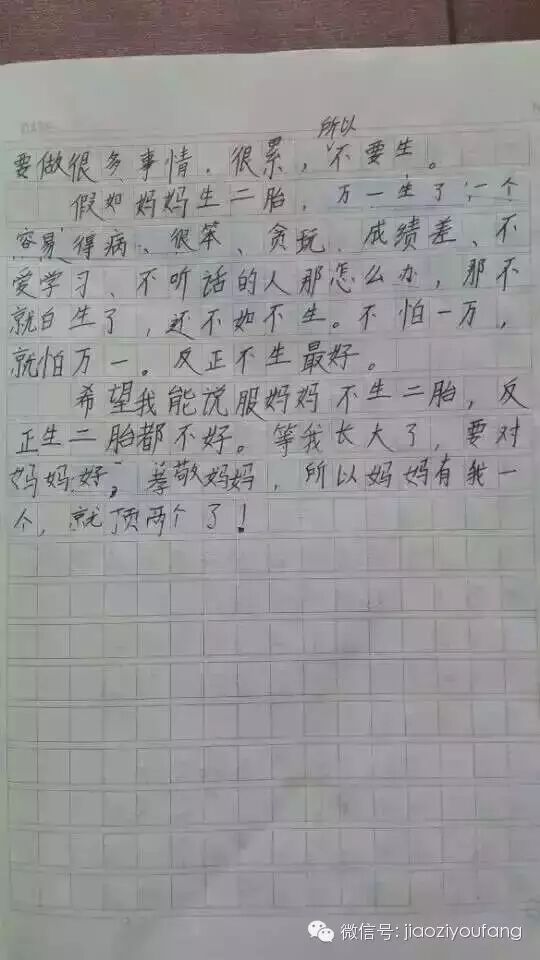 所以
要做很多事情，很累，不要生。
假如妈妈生二胎，万一生了一个
容易得病、很笨、贪玩、成绩差、不
爱学习、不听话的人那怎么办，那不
就白生了，还不如不生。不怕一万，
就怕万一。反正不生最好。
希望我能说服妈妈不生二胎，反
正生二胎都不好。等我长大了，要对
妈妈好，孝敬妈妈，所以妈妈有我一
个，就顶两个了！
微信号: jiaoziyoufang